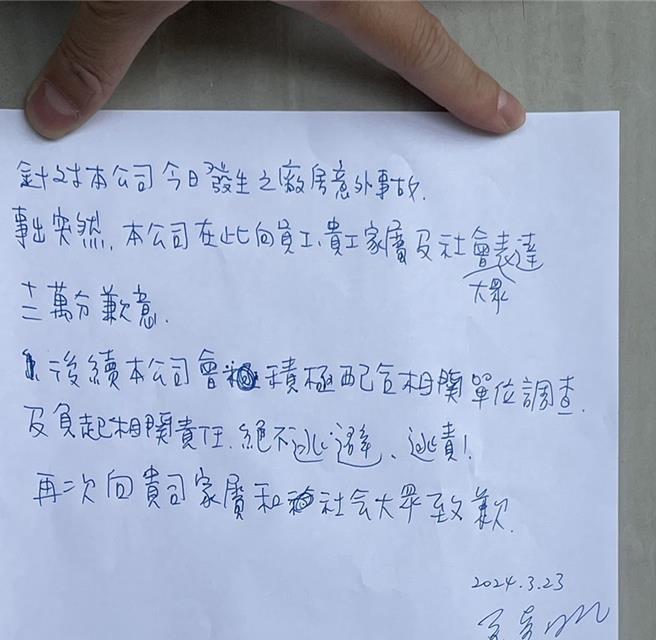 針對本公司今日發生之廠房意外事故.
事出突然,本公司在此向員工、貴工家屬及社會大眾表達
十二萬分歉意.
後續本公司會積極配合相關單位調查.
及負起相關責任.絕不逃避、逃責!
再次向貴司家屬和社会大眾致歉.
2024.3.23